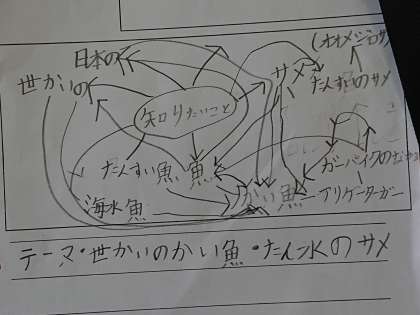 日本の
(オオメジロザメ)
サメ
世かいの
たんすいのサメ
知りたいこと
たんすい魚
魚
ガーパイクの
海水魚
かい魚
アリゲーターガー
テーマ・世かいのかい魚・たん水のサメ